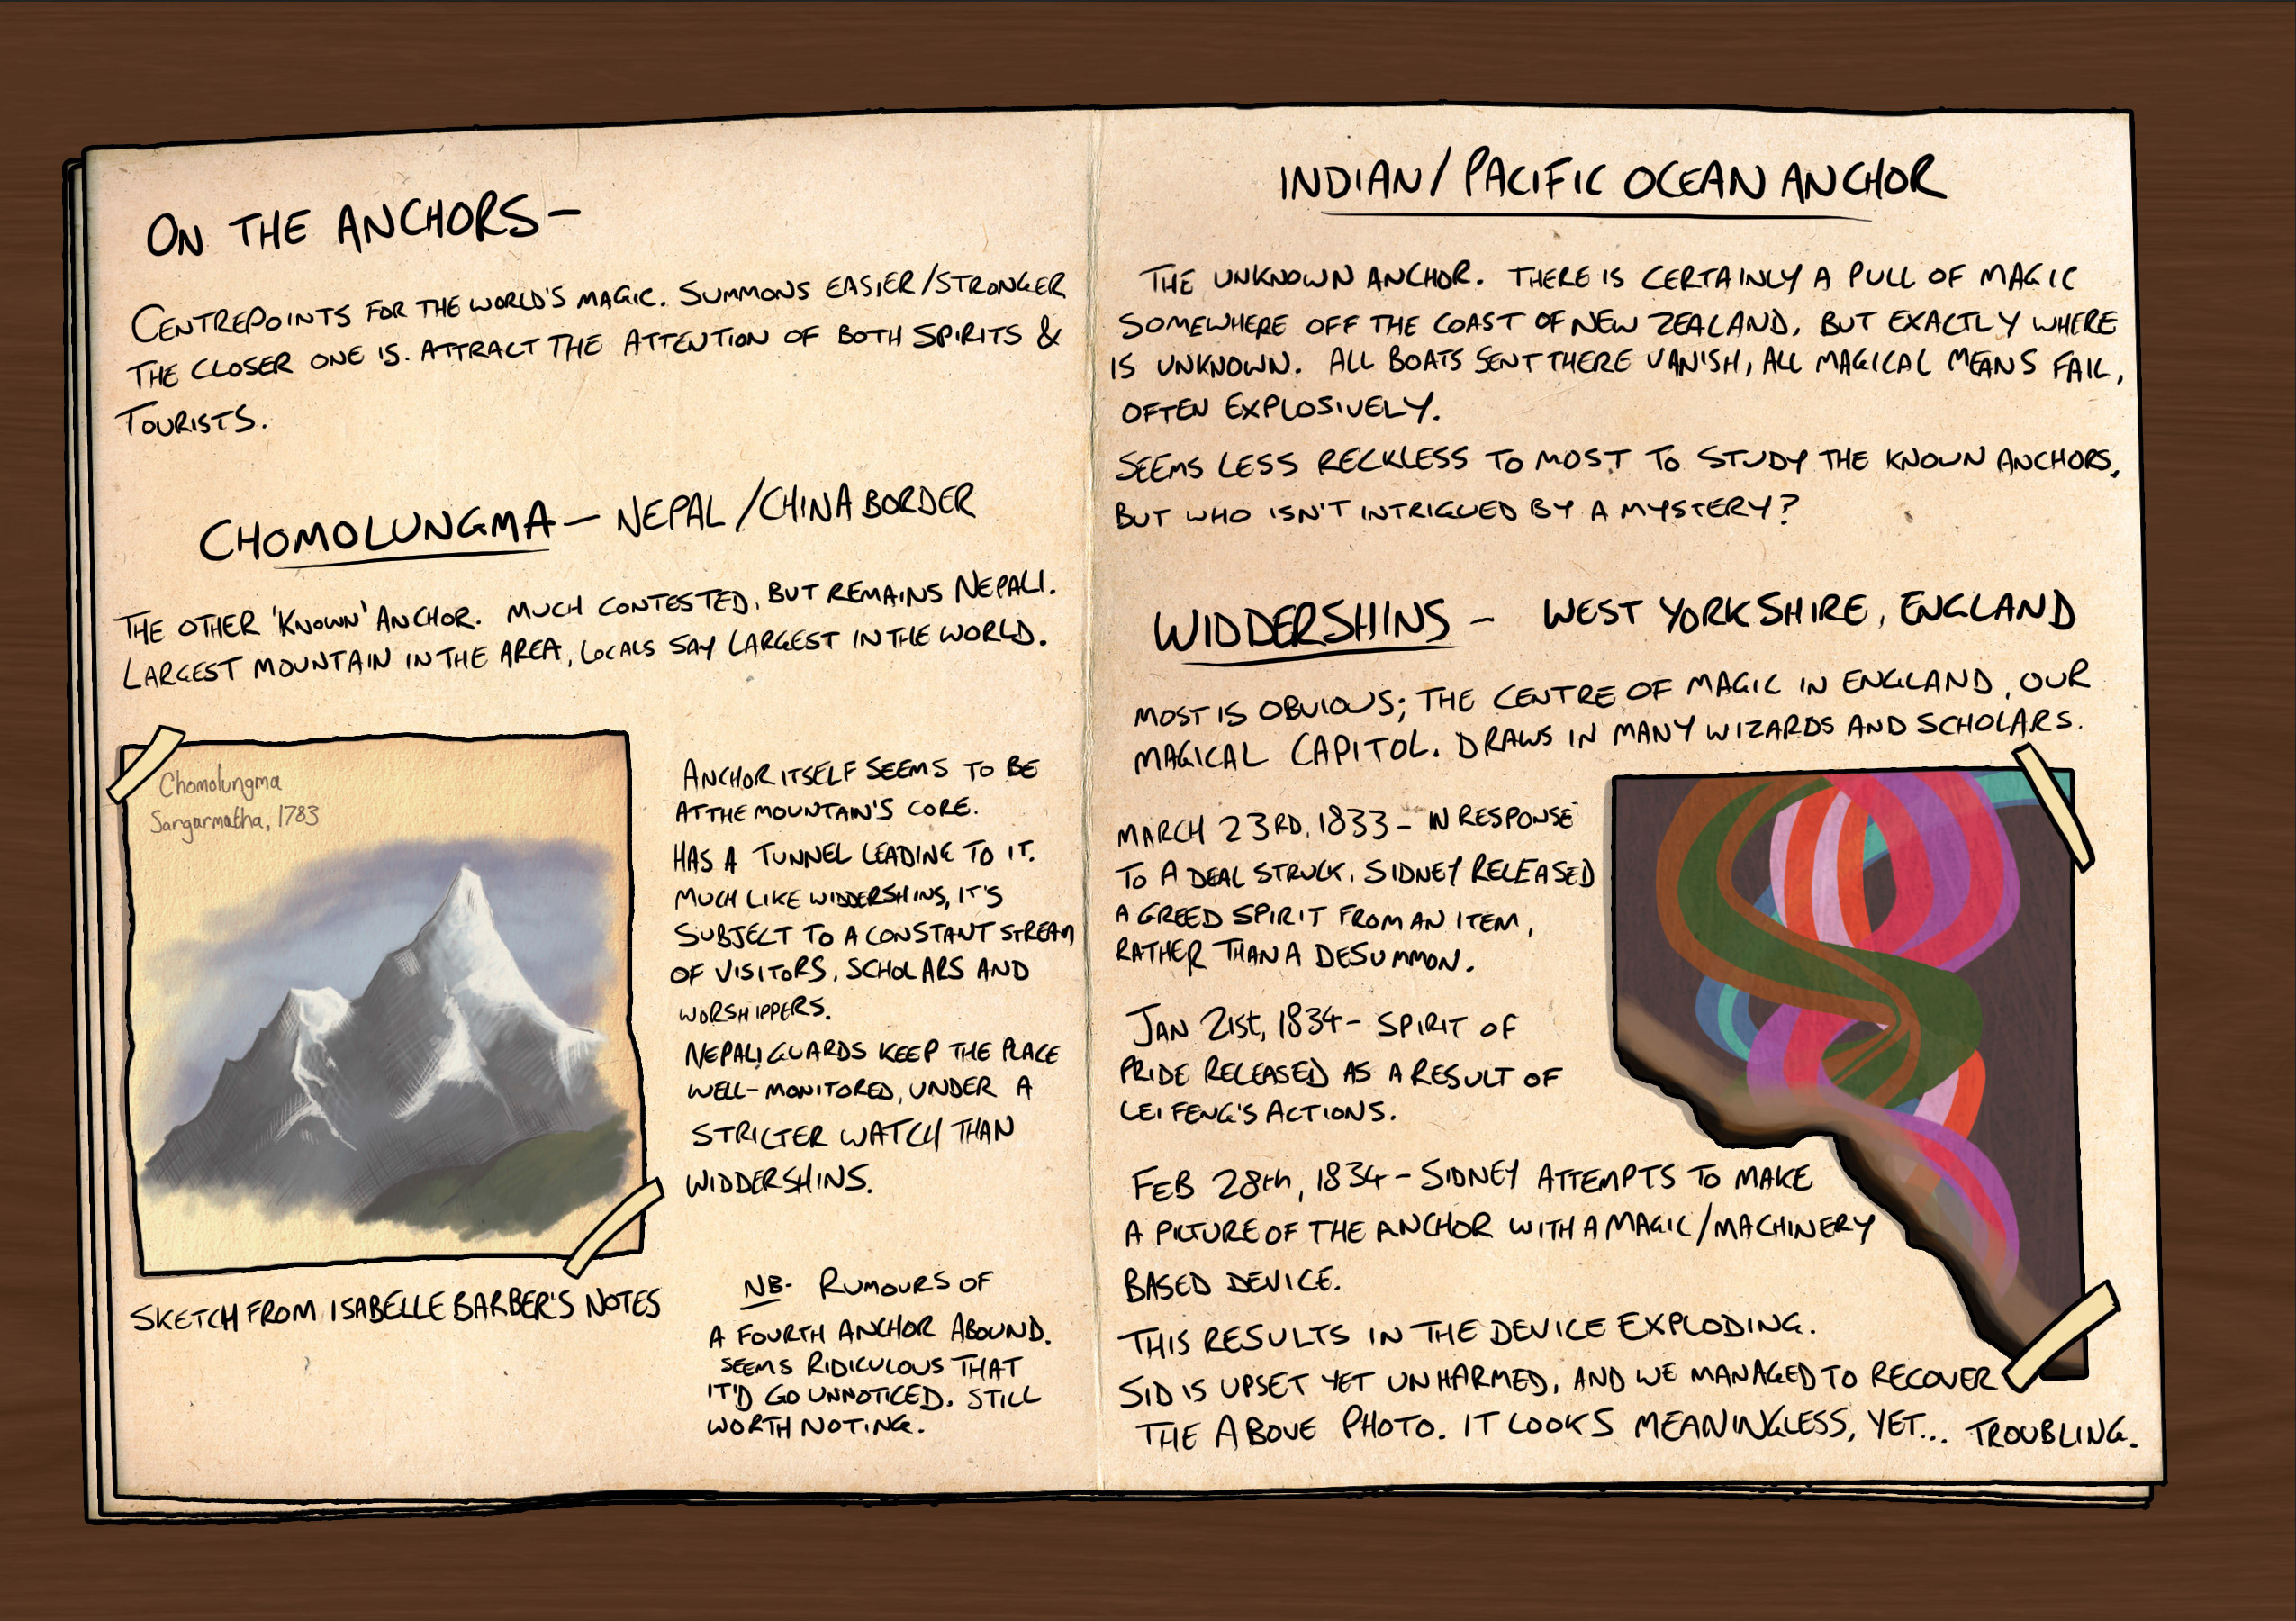 ON THE ANCHORS—
CENTREPOINTS FOR THE WORLD'S MAGIC. SUMMONS EASIER/STRONGER
THE CLOSER ONE IS. ATTRACT THE ATTENTION OF BOTH SPIRITS &
TOURISTS.
CHOMOLUNGMA — NEPAL/CHINA BORDER
THE OTHER 'KNOWN' ANCHOR. MUCH CONTESTED, BUT REMAINS NEPALI.
LARGEST MOUNTAIN IN THE AREA, LOCALS SAY LARGEST IN THE WORLD.
Chomolungma
Sargarmatha, 1783
SKETCH FROM ISABELLE BARBER'S NOTES
ANCHOR ITSELF SEEMS TO BE
AT THE MOUNTAIN'S CORE.
HAS A TUNNEL LEADING TO IT.
MUCH LIKE WIDDERSHINS, IT'S
SUBJECT TO A CONSTANT STREAM
OF VISITORS, SCHOLARS AND
WORSHIPPERS.
NEPALI GUARDS KEEP THE PLACE
WELL-MONITORED, UNDER A
STRICTER WATCH THAN
WIDDERSHINS.
NB- RUMOURS OF
A FOURTH ANCHOR ABOUND.
SEEMS RIDICULOUS THAT
IT'D GO UNNOTICED. STILL
WORTH NOTING.
INDIAN/PACIFIC OCEAN ANCHOR
THE UNKNOWN ANCHOR. THERE IS CERTAINLY A PULL OF MAGIC
SOMEWHERE OFF THE COAST OF NEW ZEALAND, BUT EXACTLY WHERE
IS UNKNOWN. ALL BOATS SENT THERE VANISH, ALL MAGICAL MEANS FAIL,
OFTEN EXPLOSIVELY.
SEEMS LESS RECKLESS TO MOST TO STUDY THE KNOWN ANCHORS,
BUT WHO ISN'T INTRIGUED BY A MYSTERY?
WIDDERSHINS - WEST YORKSHIRE, ENGLAND
MOST IS OBVIOUS; THE CENTRE OF MAGIC IN ENGLAND, OUR
MAGICAL CAPITOL. DRAWS IN MANY WIZARDS AND SCHOLARS.
MARCH 23RD, 1833 - IN RESPONSE
TO A DEAL STRUCK, SIDNEY RELEASED
A GREED SPIRIT FROM AN ITEM,
RATHER THAN A DESUMMON.
JAN 21st, 1834 - SPIRIT OF
PRIDE RELEASED AS A RESULT OF
LEI FENG'S ACTIONS.
FEB 28th, 1834 - SIDNEY ATTEMPTS TO MAKE
A PICTURE OF THE ANCHOR WITH A MAGIC/MACHINERY
BASED DEVICE.
THIS RESULTS IN THE DEVICE EXPLODING.
SID IS UPSET YET UNHARMED, AND WE MANAGED TO RECOVER
THE ABOVE PHOTO. IT LOOKS MEANINGLESS, YET... TROUBLING.